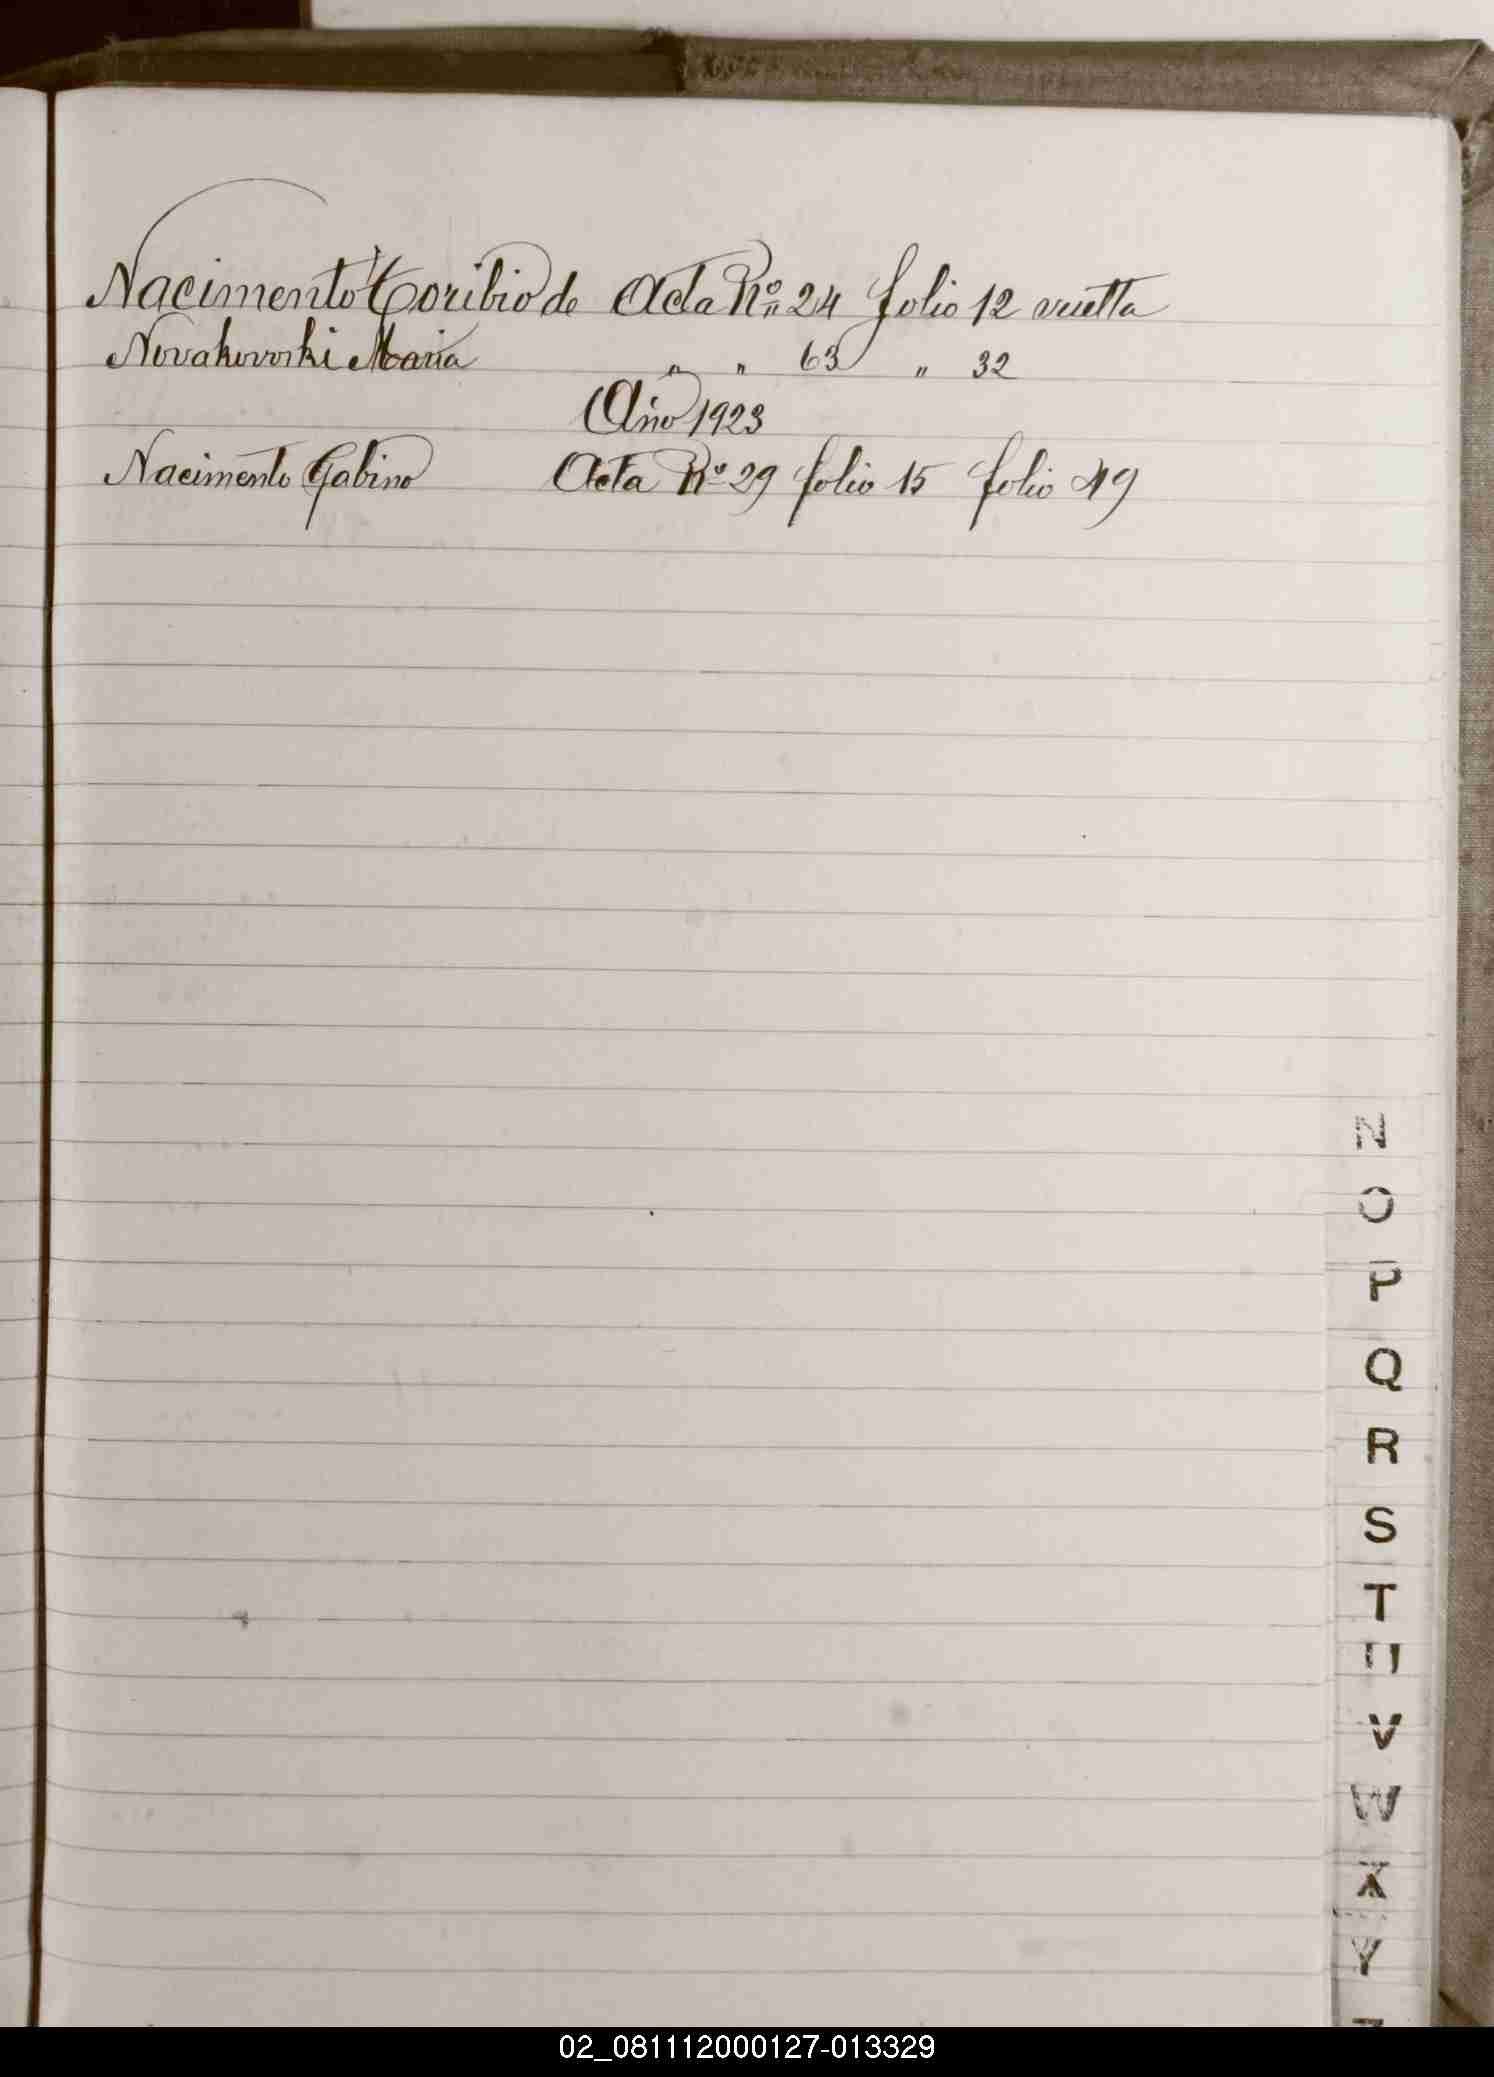 Nacimento Toribio de Acta Nº 24 folio 12 vuelta
Novakovoski Maria " " 63 " 32
Año 1923
Nacimento Gabino Acta Nº 29 folio 15 folio 49
N
O
P
Q
R
S
T
U
V
W
X
Y
Z
02_081112000127-013329